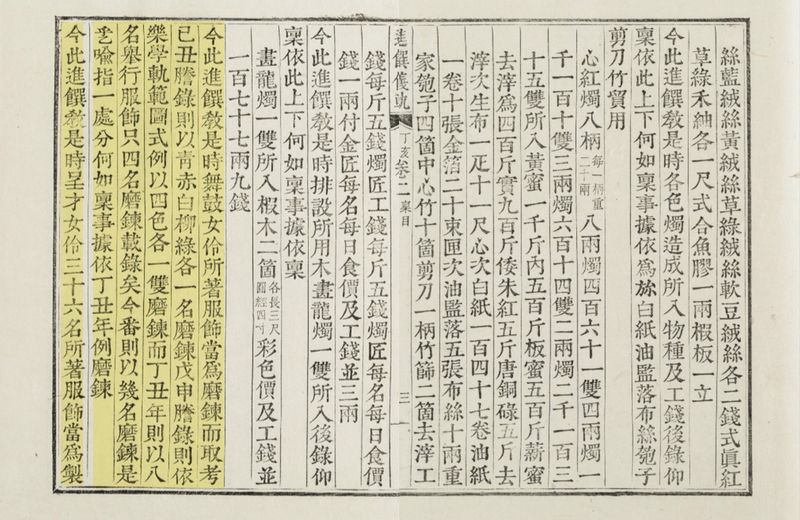 絲藍絨絲黃絨絲草綠絨絲軟豆絨絲各二錢式眞紅
草綠禾紬各一尺式合魚膠一兩椵板一立
今此進饌敎是時各色燭造成所入物種及工錢後錄仰
稟依此上下何如稟事據依爲旀白紙油監落布絲匏子
剪刀竹貿用
心紅燭八柄每一柄重二十兩八兩燭四百六十一雙四兩燭一
千一百十雙三兩燭六百十四雙二兩燭二千一百三
十五雙所入黃蜜一千斤內五百斤板蜜五百斤薪蜜
去滓爲四百斤實九百斤倭朱紅五斤唐銅碌五斤去
滓次生布一疋十一尺心次白紙一百四十七卷油紙
一卷十張金箔二十束匣次油監落五張布絲十兩重
家匏子四箇中心竹十箇剪刀一柄竹篩二箇去滓工
進饌儀軌 丁亥 卷二 稟目 三
錢每斤五錢燭匠工錢每斤五錢燭匠每名每日食價
錢一兩付金匠每名每日食價及工錢並三兩
今此進饌敎是時排設所用木晝龍燭一雙所入後錄仰
稟依此上下何如稟事據依稟
晝龍燭一雙所入椵木二箇各長三尺圓經四寸彩色價及工錢並
一百七十七兩九錢
今此進饌敎是時舞鼓女伶所著服飾當爲磨鍊而取考
己丑謄錄則以靑赤白柳綠各一名磨鍊戊申謄錄則依
樂學軌範圖式例以四色各一雙磨鍊而丁丑年則以八
名擧行服飾只四名磨鍊載錄矣今番則以幾名磨鍊是
乎喩指一處分何如稟事據依丁丑年例磨鍊
今此進饌敎是時呈才女伶三十六名所著服飾當爲製